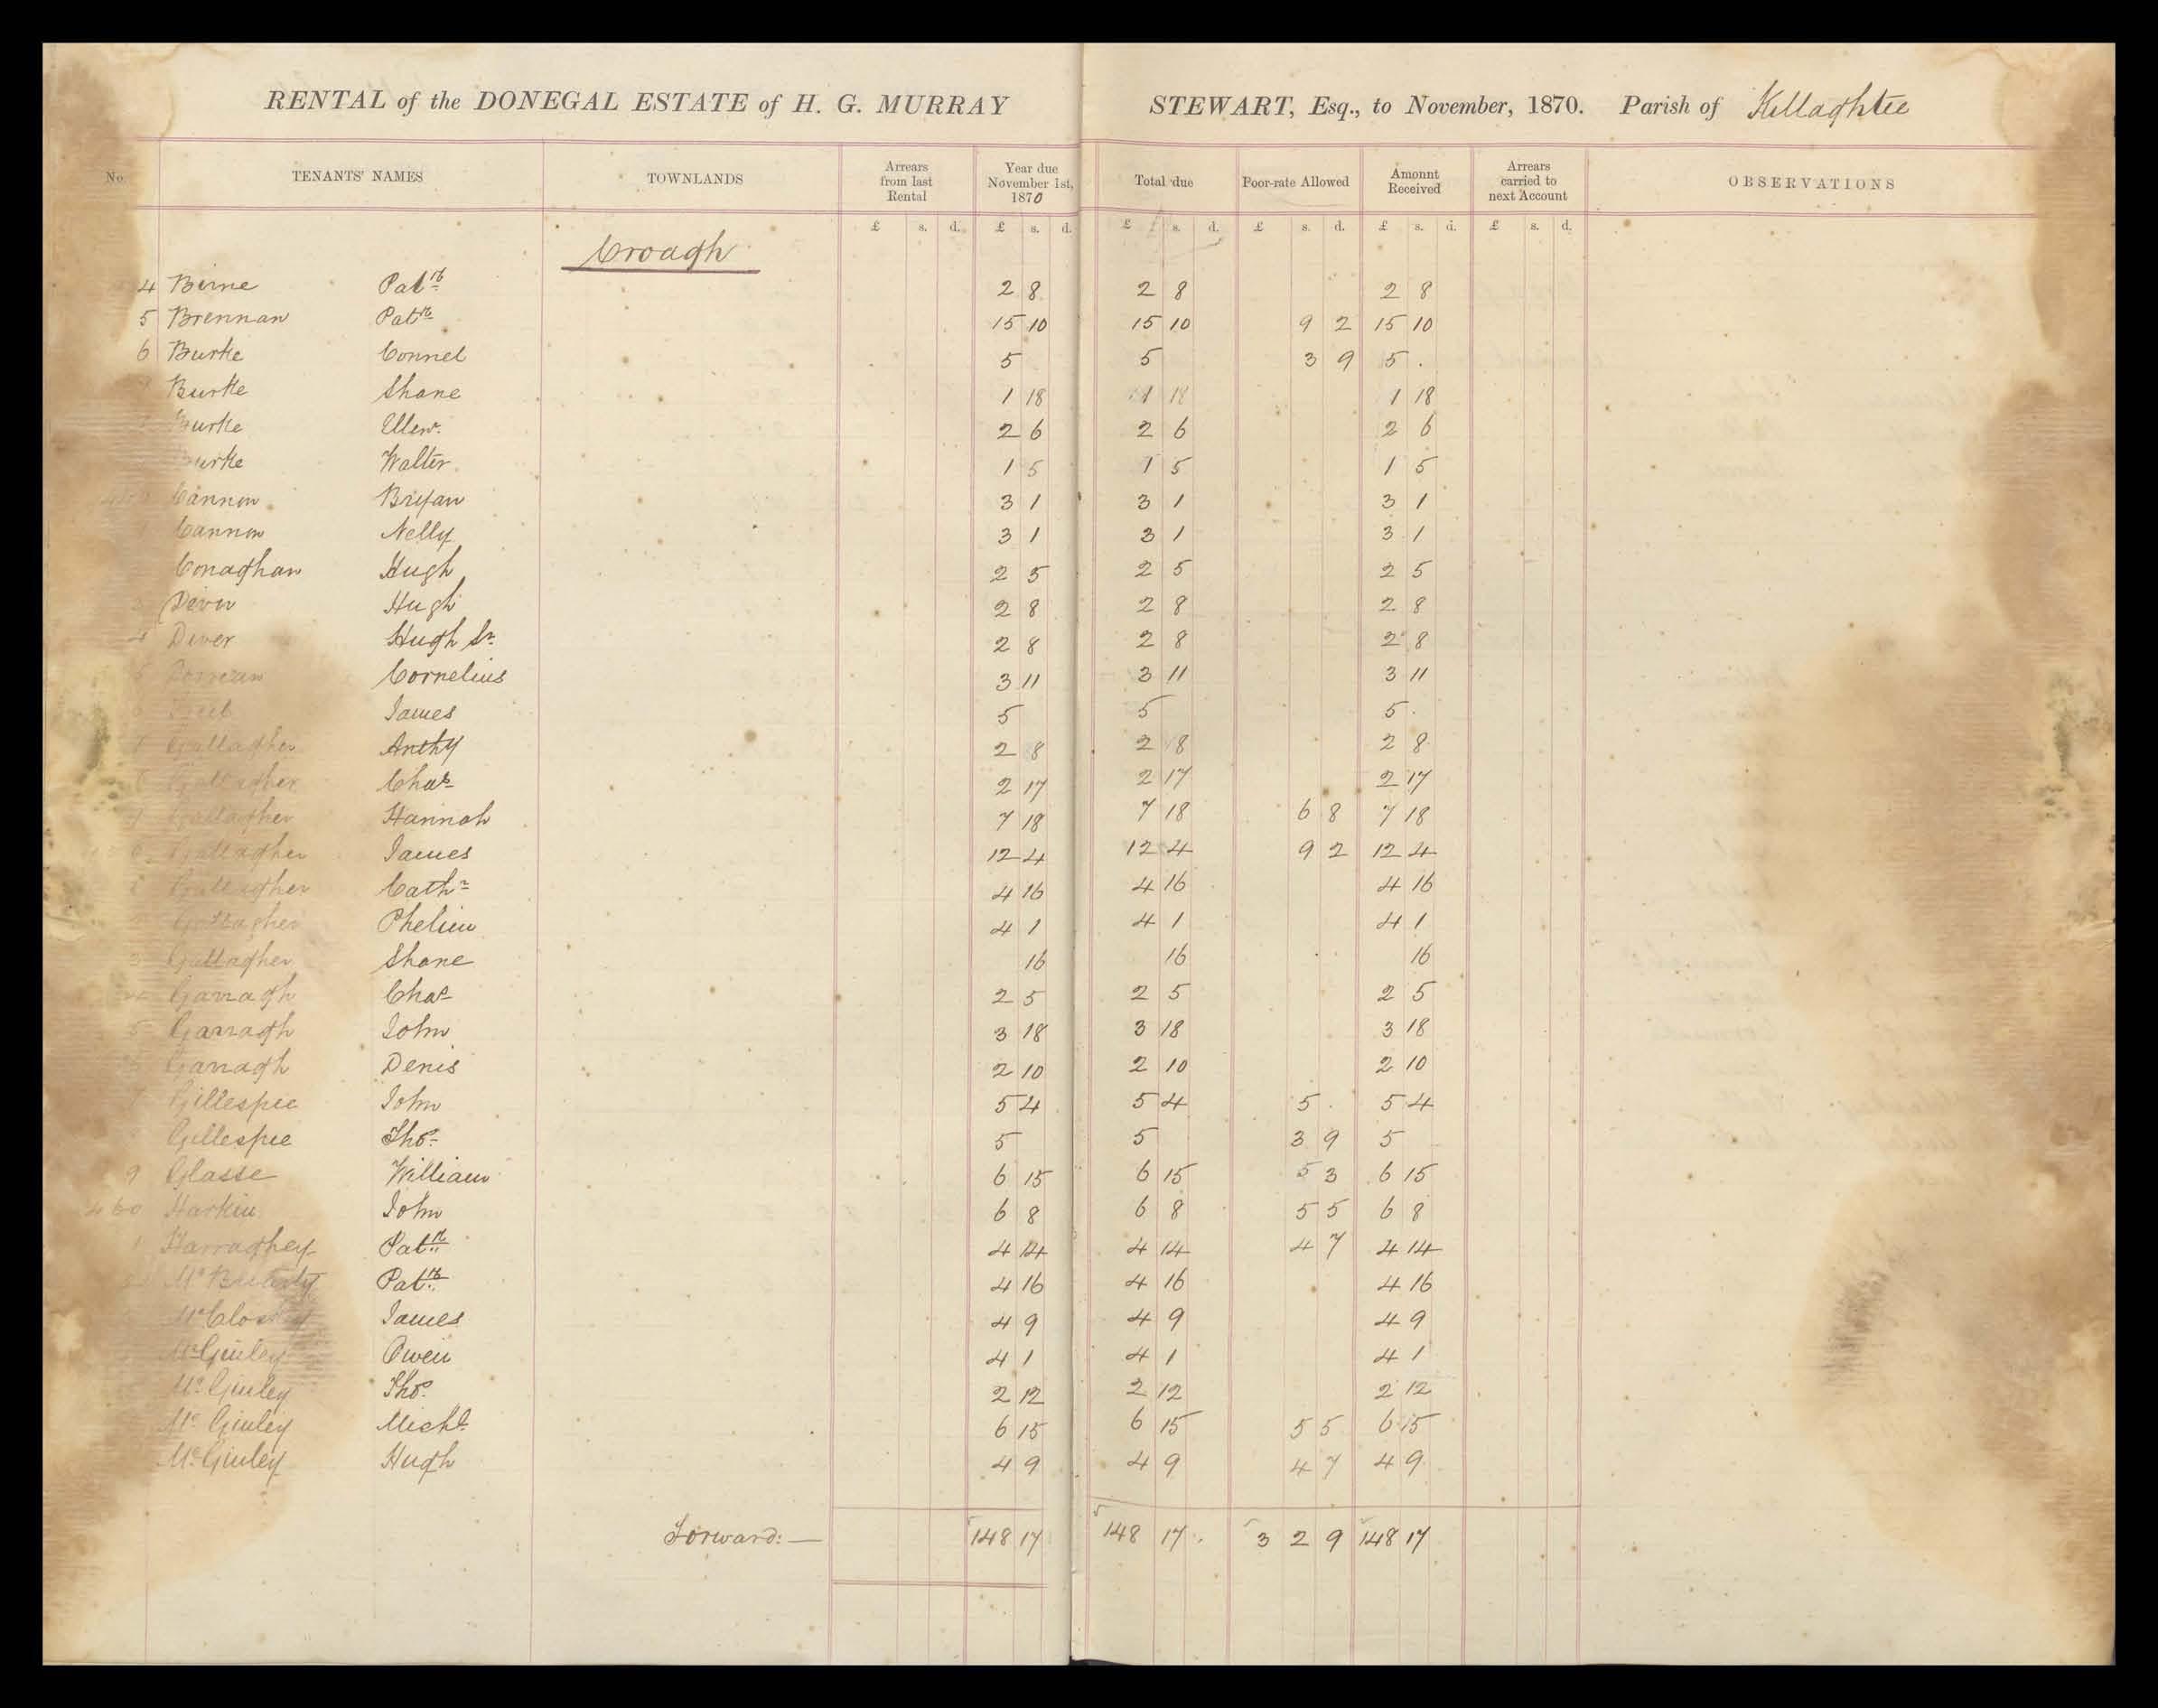 RENTAL of the DONEGAL ESTATE of H. G. MURRAY STEWART, Esq., to November, 1870. Parish of Killaghtee
No. TENANTS' NAMES TOWNLANDS Arrears from last Rental Year due November 1st, 1870 Total due Poor-rate Allowed Amonnt Received Arrears carried to next Account OBSERVATIONS
£ s. d. £ s. d. £ s. d. £ s. d. £ s. d. £ s. d.
Croagh
4 Birne Patk 2 8 2 8 2 8
5 Brennan Patk 15 10 15 10 9 2 15 10
6 Burke Connel 5 5 3 9 5 .
Burke Shane 1 18 1 18 1 18
Burke Ellen 2 6 2 6 2 6
Burke Walter 1 5 1 5 1 5
Cannon Bryan 3 1 3 1 3 1
Cannon Nelly 3 1 3 1 3 1
Conaghan Hugh 2 5 2 5 2 5
Diver Hugh 2 8 2 8 2 8
4 Diver Hugh Sr 2 8 2 8 2 8
Cornelius 3 11 3 11 3 11
James 5 5 5 .
Gallagher Anthy 2 8 2 8 2 8
Gallagher Chas 2 17 2 17 2 17
Gallagher Hannah 7 18 7 18 6 8 7 18
Gallagher James 12 4 12 4 9 2 12 4
Gallagher Cathr 4 16 4 16 4 16
Gallagher Phelim 4 1 4 1 4 1
Gallagher Shane 16 16 16
Garragh Chas 2 5 2 5 2 5
5 Garragh John 3 18 3 18 3 18
Garragh Denis 2 10 2 10 2 10
7 Gillespie John 5 4 5 4 5 . 5 4
Gillespie Thos 5 5 3 9 5
9 Glasse William 6 15 6 15 5 3 6 15
460 Harkin John 6 8 6 8 5 5 6 8
1 Harraghey Patk 4 14 4 14 4 7 4 14
Patk 4 16 4 16 4 16
McCloskey James 4 9 4 9 4 9
McGinley Owen 4 1 4 1 4 1
McGinley Thos 2 12 2 12 2 12
McGinley Michl 6 15 6 15 5 5 6 15
McGinley Hugh 4 9 4 9 4 7 4 9
Forward:— 148 17 148 17 . 3 2 9 148 17